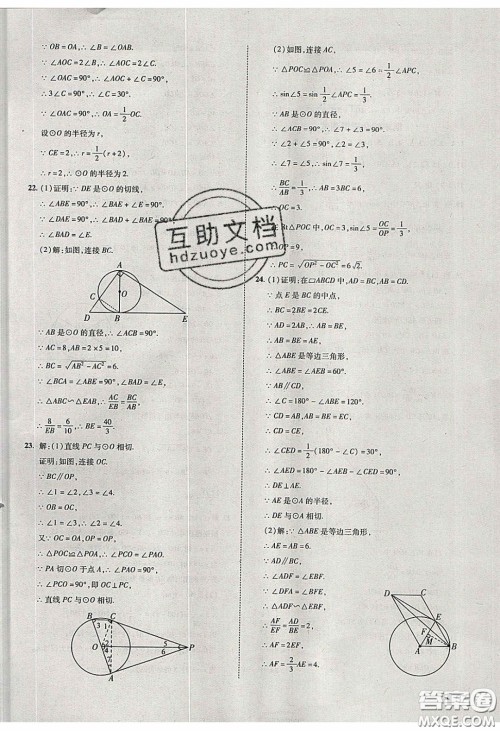 ∵ OB=OA,∴ ∠OAB=∠B.
∵ ∠AOC=2∠B,∴ ∠AOC=2∠OAC.
∵ ∠OAC=90°,∴ ∠AOC+∠C=90°.
∴ 3∠C=90°,∴ ∠C=30°.
∵ ∠OAC=90°,∴ OA=1/2 OC.
设⊙O的半径为r,
∵ CE=2,∴ r=1/2(r+2),
∴ r=2,∴ ⊙O的半径为2.
22. (1)证明:∵ DE是⊙O的切线,
∴ ∠ABE=90°,∴ ∠BAE+∠E=90°.
∵ ∠DAE=90°,∴ ∠BAD+∠BAE=90°,
∴ ∠BAD=∠E.
(2)解:如图,连接BC.
A
C
O
D B E
∵ AB是⊙O的直径,∴ ∠ACB=90°.
∵ AC=8,AB=2×5=10,
∴ BC=√(AB²-AC²)=6.
∵ ∠BCA=∠ABE=90°,∠BAD=∠E,
∴ △ABC∽△EAB,∴ AC/EB=BC/AB,
∴ 8/EB=6/10,∴ BE=40/3.
23. 解:(1)直线PC与⊙O相切.
证明:如图,连接OC.
∵ BC∥OP,
∴ ∠1=∠2,∠3=∠4.
∵ OB=OC,
∴ ∠1=∠3,∴ ∠2=∠4.
又∵ OC=OA,OP=OP,
∴ △POC≌△POA,∴ ∠PCO=∠PAO.
∵ PA切⊙O于点A,∴ ∠PAO=90°,
∴ ∠PCO=90°,即OC⊥PC,
∴ 直线PC与⊙O相切.
B C
1 3
5
O 2 4 P
6
A
(2)如图,连接AC,
∵ △POC≌△POA,∴ ∠5=∠6=1/2∠APC,
∴ sin∠5=sin 1/2∠APC=1/3.
∵ ∠PCO=90°,∴ ∠2+∠5=90°.
∵ AB是⊙O的直径,
∴ ∠ACB=90°,∴ ∠7+∠3=90°.
∵ ∠2+∠5=90°,
∴ ∠7=∠5,∴ sin∠7=1/3,
∴ BC/AB=1/3,
OC=3.
在Rt△POC中,OC=3,sin∠5=OC/OP=1/3,
OP=9,
∴ PC=√(OP²-OC²)=6√2.
24. (1)证明:在▱ABCD中,AD=BC,AB=CD.
∵ 点E是BC的中点,
∴ BC=2BE=2CE.
∵ AD=2AB,
∴ AB=BE.
∵ ∠ABC=60°,
∴ △ABE是等边三角形,
∵ AB∥CD,
∴ ∠C=180°-∠ABE=120°.
∵ CD=CE,
∴ ∠CED=1/2(180°-∠C)=30°.
∴ ∠AED=180°-∠AEB-∠CED=90°,
∴ DE⊥AE.
∵ AE是⊙A的半径,
∴ DE与⊙A相切.
(2)解:∵ △ABE是等边三角形,
∴ AE=AB=6.
∵ AD∥BC,
∴ ∠ADF=∠EBF.
∵ ∠DFA=∠BFE,
∴ △ADF∽△EBF,
∴ AF/EF=AD/BE=2,
∴ AF=2EF,
∴ AF=2/3 AE=4.
D C
E
F
M
A B
互助文档
hdzuoye.com
答案圈
MXQE.COM